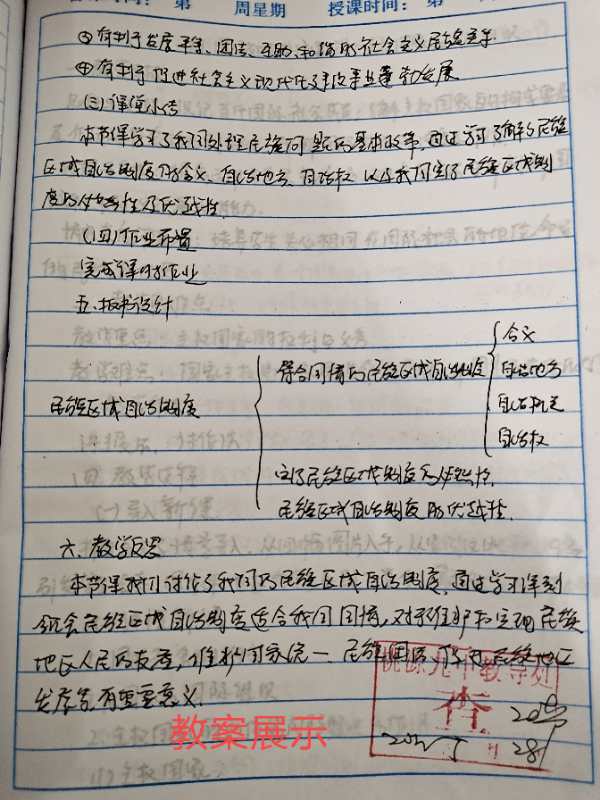 周星期 授课时间： 第
③有利于发展平等、团结、互助、和谐的社会主义民族关系
④有利于促进社会主义现代化建设事业蓬勃发展
(三)课堂小结
本节课学习了我国处理民族问题的基本政策，通过学习了解了民族
区域自治制度的含义、自治地方、自治权 以及我国实行民族区域制
度的必然性及优越性。
(四)作业布置
完成课时作业
五、板书设计
民族区域自治制度
符合国情的民族区域自治制度
含义
自治地方
自治机关
自治权
实行民族区域制度的必然性
民族区域自治制度的优越性
六、教学反思
本节课我们讨论了我国的民族区域自治制度，通过学习深刻
领会民族区域自治制度适合我国国情，对于维护和实现民族
地区人民的
维护国家统一
民族团结
民族地区
发展等有重要意义。
教案展示
查
28